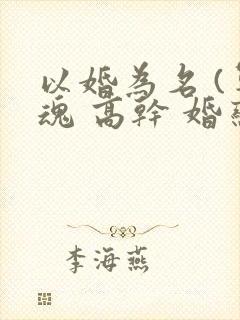 以婚為名(
魂 高幹 婚
李海燕